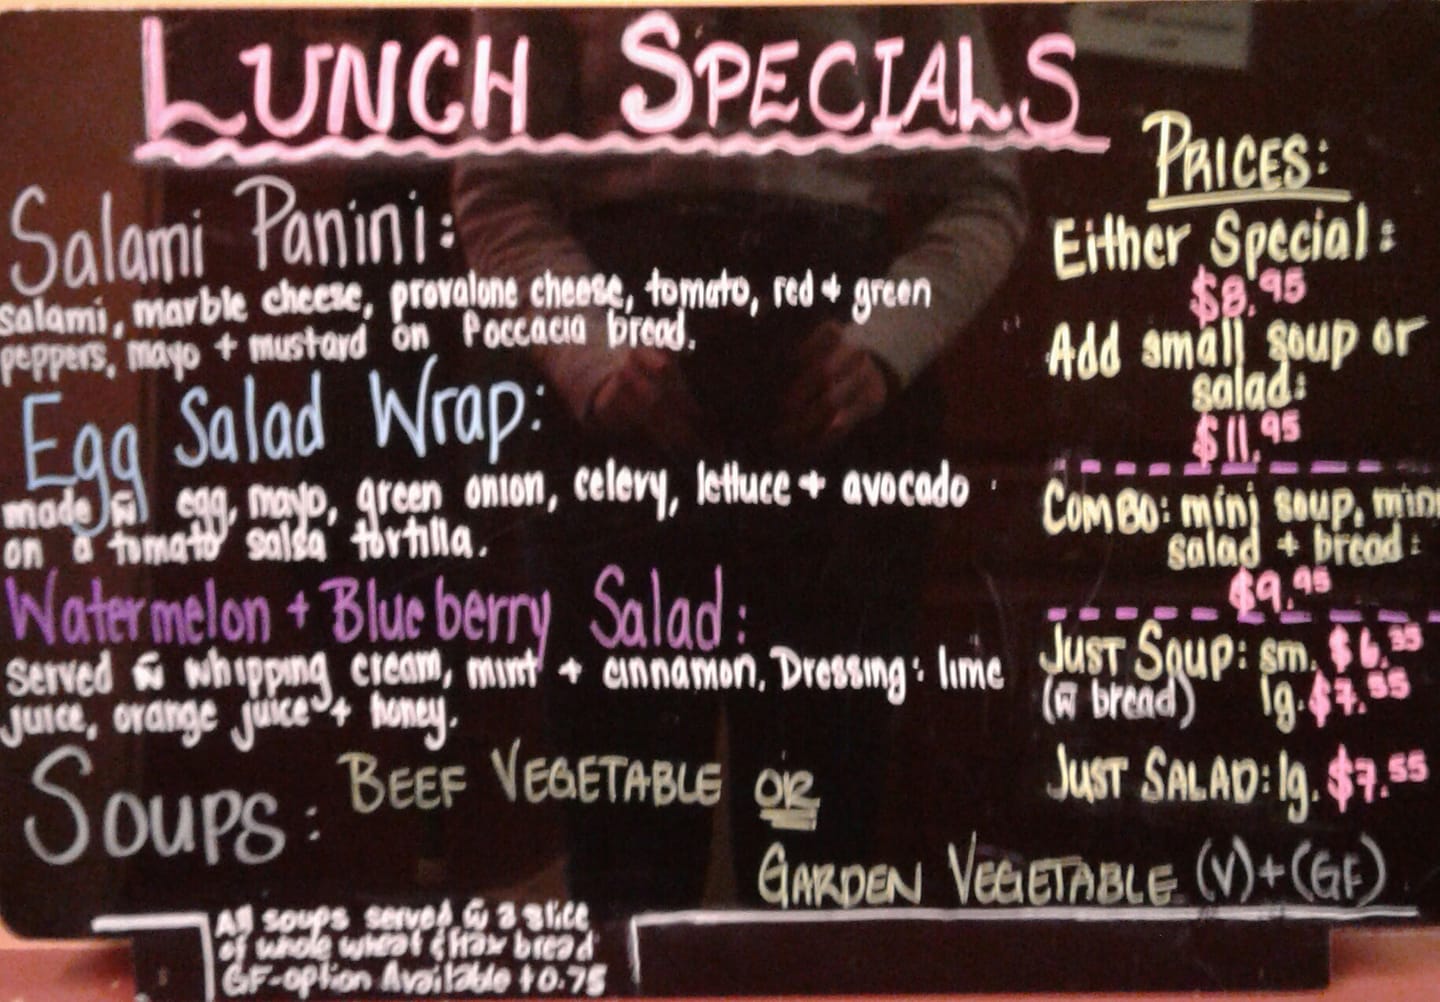 LUNCH SPECIALS
Salami Panini:
salami, marble cheese, provalone cheese, tomato, red + green
peppers, mayo + mustard on Foccacia bread.
Egg Salad Wrap:
made w̄ egg, mayo, green onion, celery, lettuce + avocado
on a tomato salsa tortilla.
Watermelon + Blueberry Salad:
served w̄ whipping cream, mint + cinnamon. Dressing: lime
juice, orange juice + honey.
SOUPS: BEEF VEGETABLE OR
GARDEN VEGETABLE (V)+(GF)
All soups served w̄ a slice
of whole wheat bread
GF-option Available +0.75
PRICES:
Either Special:
$8.95
Add small soup or
salad:
$11.95
COMBO: mini soup, mini
salad + bread:
$9.95
JUST SOUP: sm. $6.35
(w̄ bread) lg. $7.55
JUST SALAD: lg. $7.55